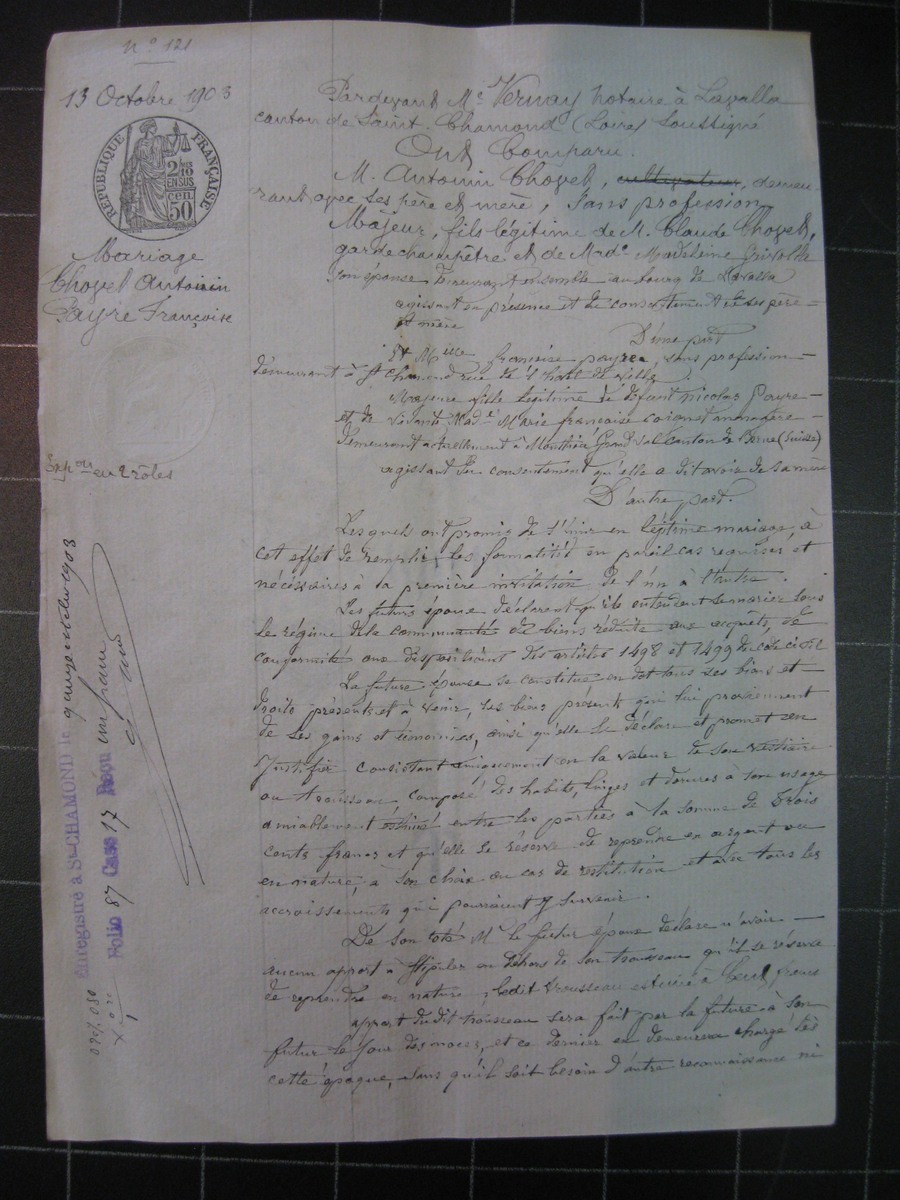 N° 121
13 Octobre 1903
RÉPUBLIQUE FRANÇAISE
2/10 EN SUS
50 cen
Mariage
Choyet Antoinin
Payre Françoise
Exp on en 2 rôles
Enregistré à St-CHAMOND le quinze octobre 1903
Folio 87 Case 17 Reçu cinq francs
Pardevant Me Vernay notaire à Lavalla
canton de Saint-Chamond (Loire) soussigné
Ont Comparu.
M. Antonin Choyet, cultivateur, demeu-
rant avec ses père et mère, sans profession
Majeur, fils légitime de M. Claude Choyet,
garde champêtre et de Made Madeleine
son épouse demeurant ensemble au bourg de Lavalla
agissant en présence et du consentement de ses père
et mère
D'une part
Et Melle françoise payre, sans profession
demeurant à St Chamond rue de l'hotel de ville.
Majeure fille légitime de défunt nicolas Payre
et de vivante Made Marie françoise coignet ménagère
demeurant actuellement à Grand Val canton de Berne (Suisse)
agissant du consentement qu'elle a dit avoir de sa mère
D'autre part.
Lesquels ont promis de s'unir en légitime mariage, à
cet effet de remplir les formalités en pareil cas requises et
nécessaires à la première invitation de l'un à l'autre.
Les futurs époux déclarent qu'ils entendent se marier sous
le régime de la communauté de biens réduite aux acquêts, de
conformité aux dispositions des articles 1498 et 1499 du code civil
La future épouse se constitue en dot tous ses biens et
droits présents et à venir, ses biens présents qui lui proviennent
de ses gains et économies, ainsi qu'elle le déclare et promet en
justifier consistant uniquement en la valeur de son vestiaire
ou trousseau composé des habits, linges et dorures à son usage
amiablement estimé entre les parties à la somme de trois
cents francs et qu'elle se réserve de reprendre en argent ou
en nature, à son choix au cas de restitution et sur tous les
accroissements qui pourraient y survenir.
De son coté M. le futur époux déclare n'avoir
aucun apport à stipuler en dehors de son trousseau qu'il se réserve
de reprendre en nature, ledit trousseau estimé à Cent francs
apport dudit trousseau sera fait par la future à son
futur le jour des noces, et ce dernier en demeurera chargé dès
cette époque, sans qu'il soit besoin d'autre reconnaissance ni